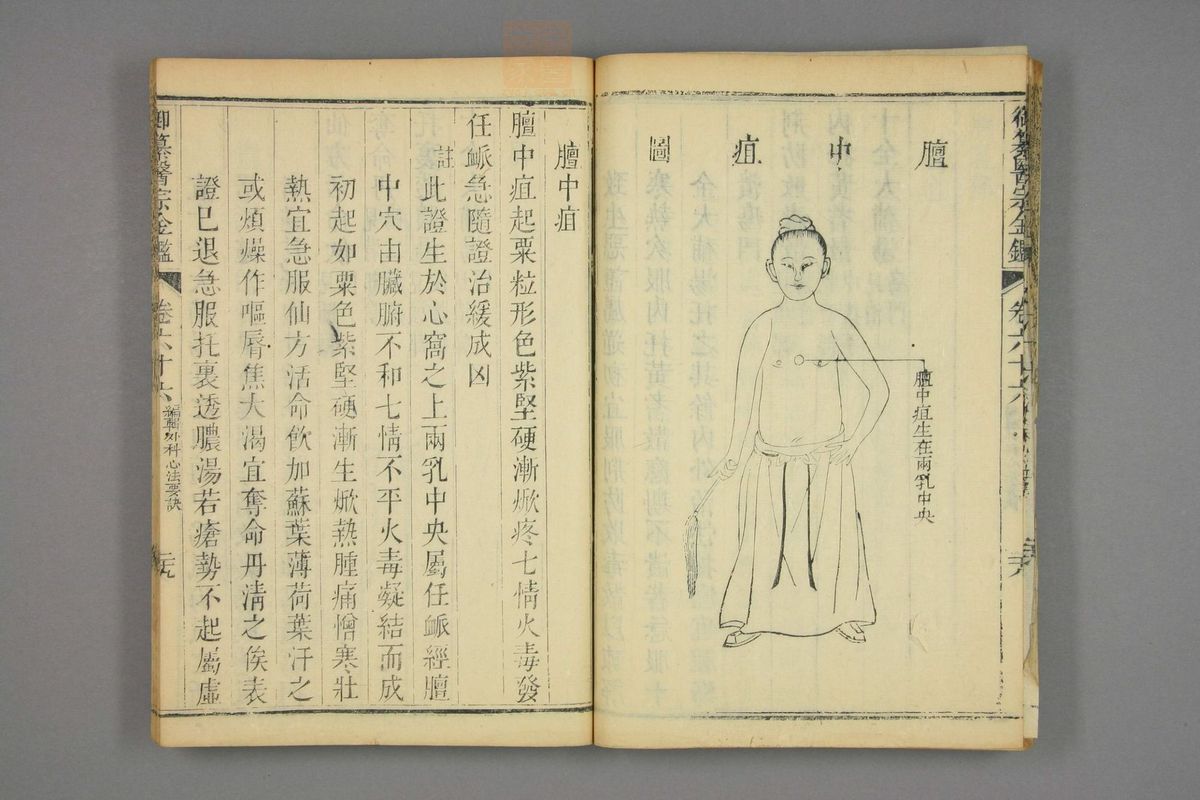 膻中疽圖
膻中疽生在兩乳中央
御纂醫宗金鑑
卷六十六
膻中疽
膻中疽起粟粒形色紫堅硬漸焮疼七情火毒發
任脈急隨證治緩成凶
註此證生於心窩之上兩乳中央屬任脈經膻
中穴由臟腑不和七情不平火毒凝結而成
初起如粟色紫堅硬漸生焮熱腫痛憎寒壯
熱宜急服仙方活命飲加蘇葉薄荷葉汗之
或煩燥作嘔脣焦大渴宜奪命丹清之俟表
證已退急服托裏透膿湯若瘡勢不起屬虛
御纂醫宗金鑑
卷六十六
編輯外科心法要訣